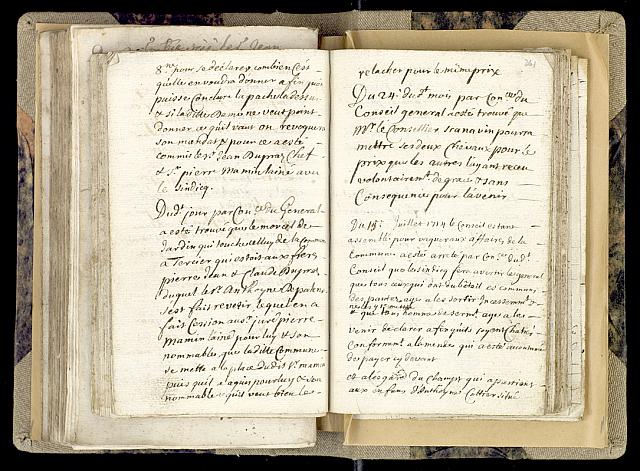 8.re pour se déclarer combien Cest
quelle en voudra donner afin quon
puisse Conclure la pache la dessus
& si laditte Dame ne veut point
donner ce quil vaut on revoquera
son mandat & pour ce a esté
commis le Sr Jean Dupraz Chef
& Sr pierre Mamin laine avec
le Sindicq.
Dudt jour par Conce du General
a esté trouvé que le morcel de
Jardin qui touche alluy de la Commune
a Tercier qui estoit aux freres
pierre Jean & Claude Dupraz
duquel le Sr Anthoyne Depalens
sest fait revetir lequel en a
fait Cession au Sr juré pierre
Mamin lainé pour luy & son
nommable que laditte Commune
se mette a la place dudit Sr mamin
puis quil a aquis pour luy & son
nommable & quil veut bien le
261
relacher pour le mime prix
Du 24e dudt mois par Conce du
Conseil general a esté trouvé que
Mr le Conseillier Scanavin pourra
mettre ses deux Chevaux pour le
prix que les autres luy ont receu
volontairemt de grace & sans
Consequence pour lavenir
Du 18e Juillet 1714 le Conseil estant
assemblé pour vaquer aux affaires de la
Commune a esté arreté par Conce dudt
Conseil que le sindicq fera avenir le general
que tous ceux qui ont du bétail es communs
des paquiers aye a les sortir Incessemt &
& que tous nommables semt aye a les
venir déclarer afin quils soyent Chatiés
Conformemt
de payer cy devant
et a lesgard du Champt qui apartient
aux enfans d'Antholyne Cottier situé